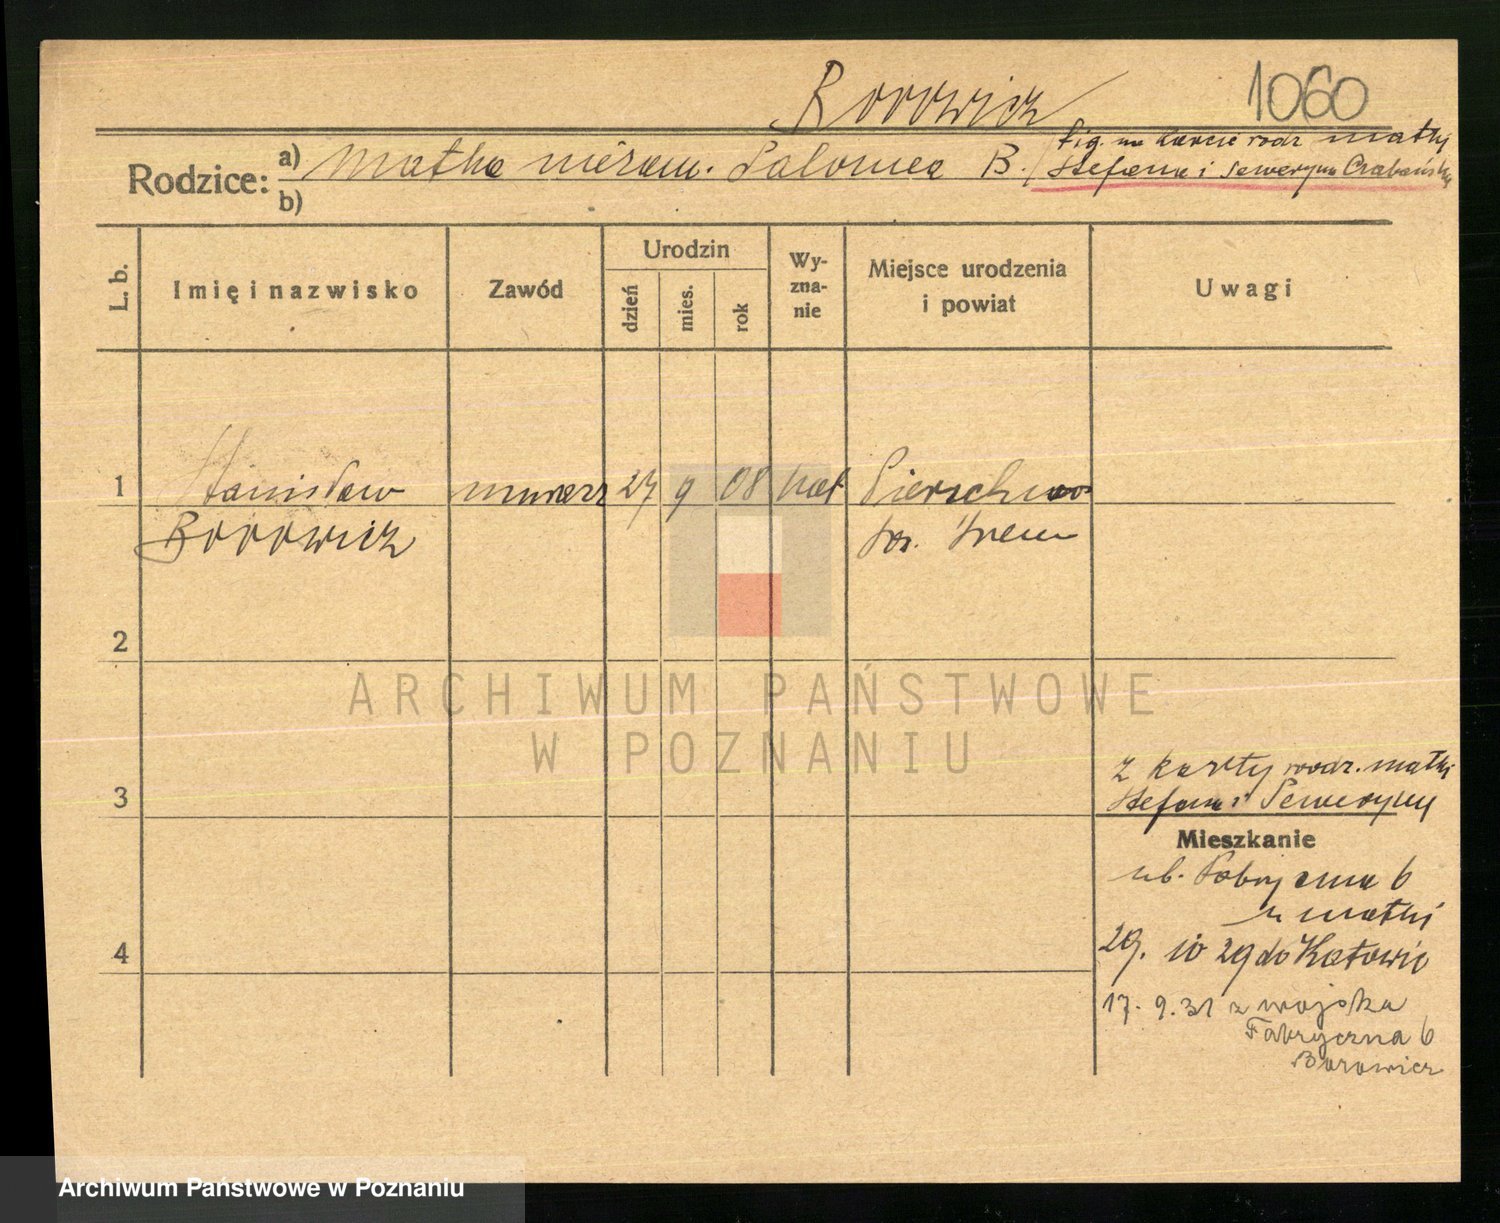 Borowicz
1060
Rodzice:
a) Matka niezam. Salomea B.
fig. na karcie rodz matki
Stefana i Seweryna
b)
L. b.
Imię i nazwisko
Zawód
Urodzin
dzień
mies.
rok
Wy-
zna-
nie
Miejsce urodzenia
i powiat
Uwagi
1
Stanisław
Borowicz
murarz
27
9
08
kat
pow. Śrem
2
ARCHIWUM PAŃSTWOWE
W POZNANIU
z karty rodz. matki
Stefana i Seweryny
3
Mieszkanie
ul. Fabryczna 6
u matki
4
29. 10 29 do Katowic
17. 9. 31 z wojska
Fabryczna 6
Borowicz
Archiwum Państwowe w Poznaniu